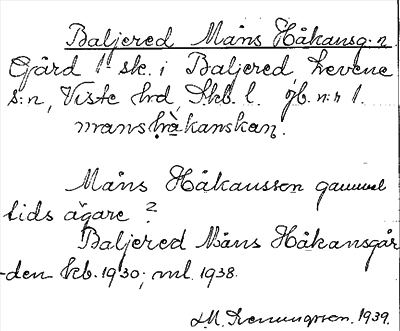 Baljered Måns Håkansg:n
Gård 1 sk. i Baljered, Levene
s:n, Viste hrd, Skb. l. jb. n:r 1.
månshåkanskan.
Måns Håkansson gammal
tids ägare?
Baljered Måns Håkansgår
-den kb. 1930; ml. 1938.
1939.